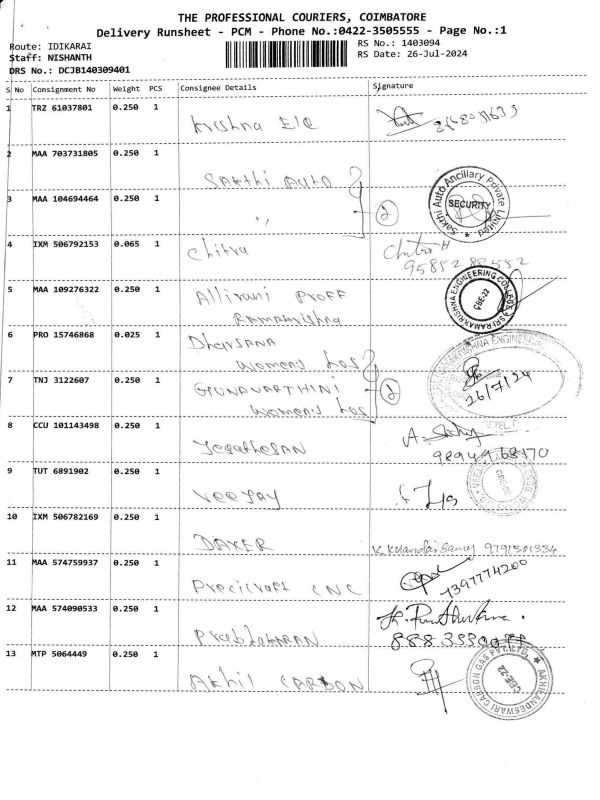 THE PROFESSIONAL COURIERS, COIMBATORE
Delivery Runsheet - PCM - Phone No.:0422-3505555 - Page No.:1
Route: IDIKARAI
Staff: NISHANTH
DRS No.: DCJB140309401
RS No.: 1403094
RS Date: 26-Jul-2024
S No Consignment No Weight PCS Consignee Details Signature
1 TRZ 61037801 0.250 1 Krishna E/C
2 MAA 703731805 0.250 1 Sakthi Auto
3 MAA 104694464 0.250 1 " 2
Sakthi Auto Ancillary Private Limited
SECURITY
4 IXM 506792153 0.065 1 Chitra Chitra H
9585282552
5 MAA 109276322 0.250 1 Allirani Proff
Ramakrishna
SRI RAMAKRISHNA ENGINEERING COLLEGE
CBE-22
6 PRO 15746868 0.025 1 Dharsana
Womens Hos
7 TNJ 3122607 0.250 1 Gunavarthini
Womens Hos 2
26/7/24
8 CCU 101143498 0.250 1 Jegatheesan
9894968170
9 TUT 6891902 0.250 1 Veejay
10 IXM 506782169 0.250 1 K. Kulandai Samy 9791301334
11 MAA 574759937 0.250 1 Precicraft CNC
12 MAA 574090533 0.250 1 Prabhakaran
13 MTP 5064449 0.250 1 Akhil Carbon
AKHILANDESWARI CARBON GAS PVT. LTD.
CBE-22